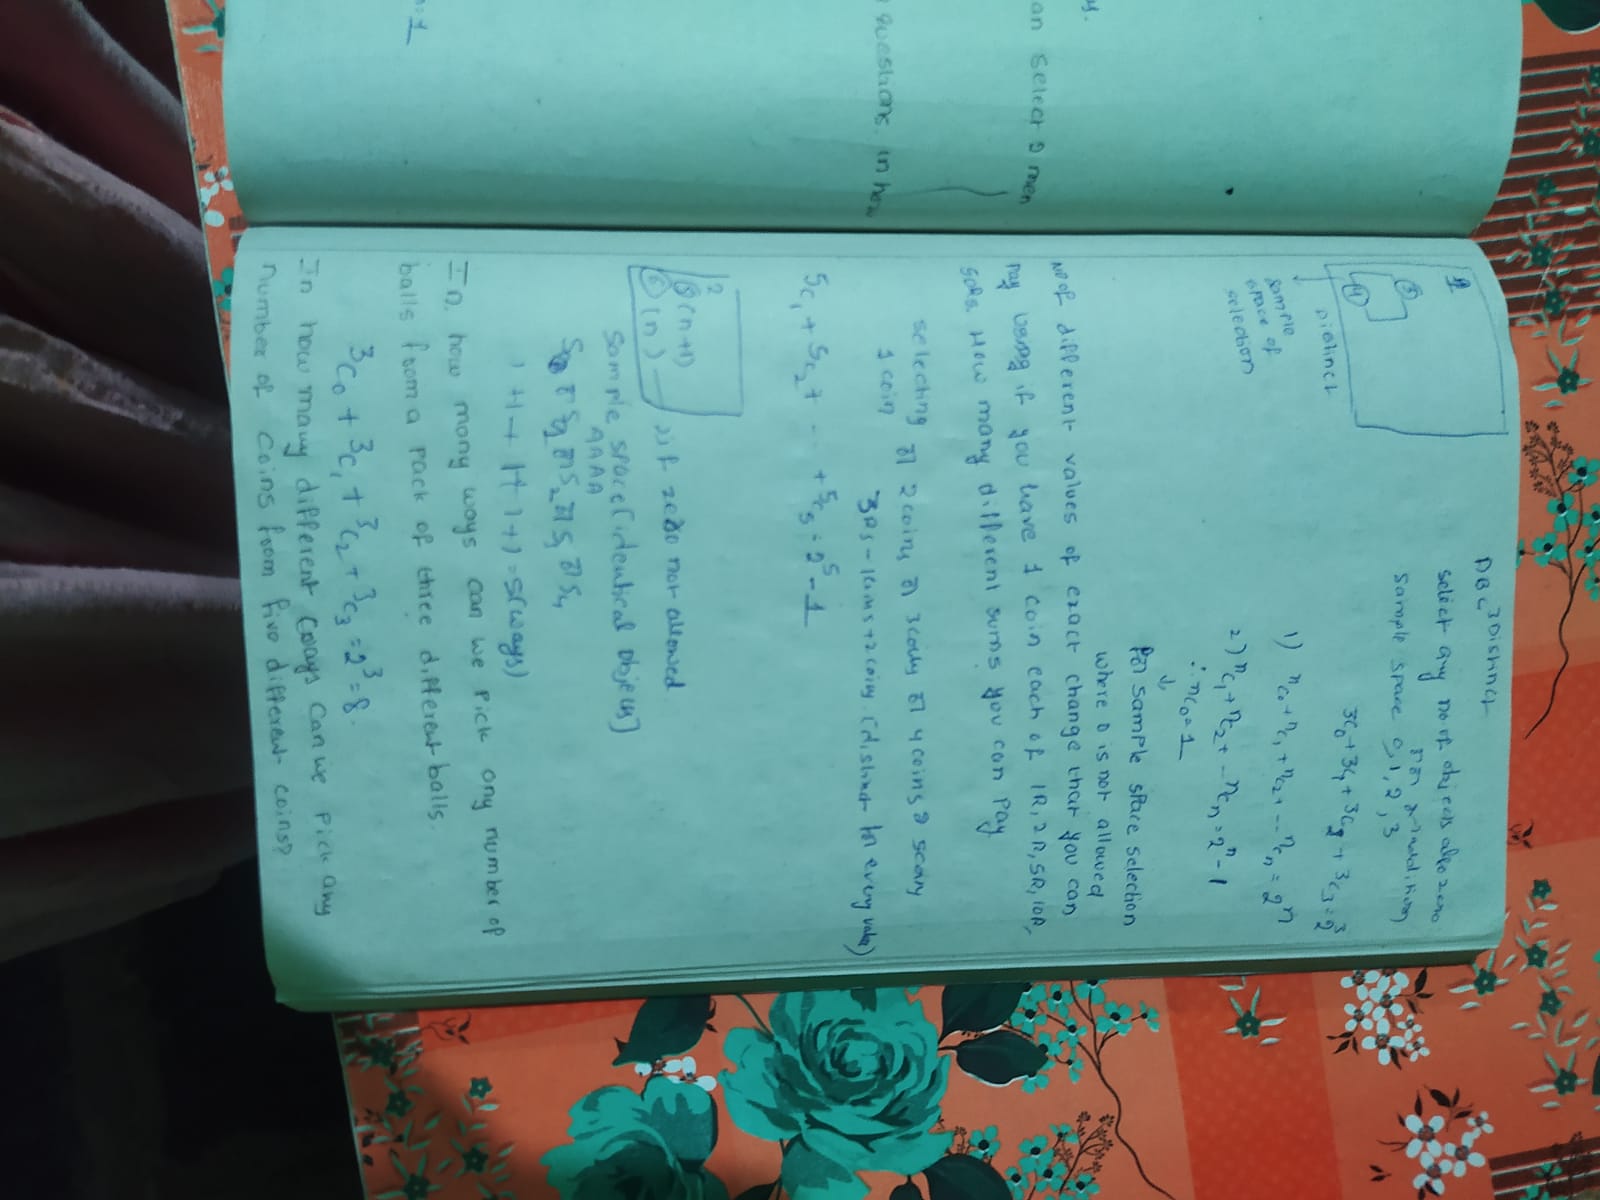 y.
an select 2 men
questions. in how
= 1
ABC 3 Distinct
select any no of objects also zero
sample space 0, 1, 2, 3
3c0 + 3c1 + 3c2 + 3c3 = 2^3
distinct
sample
space of
selection
1) nc0 + nc1 + nc2 + -- ncn = 2^n
2) nc1 + nc2 + -- ncn = 2^n - 1
∴ nc0 = 1
↓
for sample space selection
where 0 is not allowed
No of different values of exact change that you can
pay using if you have 1 coin each of 1R, 2R, 5R, 10R,
How many different sums you can pay
selecting या 2 coins या 3 coins या 4 coins
1 coin
(distinct for every value)
5c1 + 5c2 + -- + 5c5 = 2^5 - 1
2
(n+1)
(n) → if zero not allowed
sample space (identical objects)
AAAA
1 + 1 + 1 + 1 + 1 = 5 (ways)
In how many ways can we pick any number of
balls from a pack of three different balls.
3c0 + 3c1 + 3c2 + 3c3 = 2^3 = 8.
In how many different ways can we pick any
number of coins from five different coins?